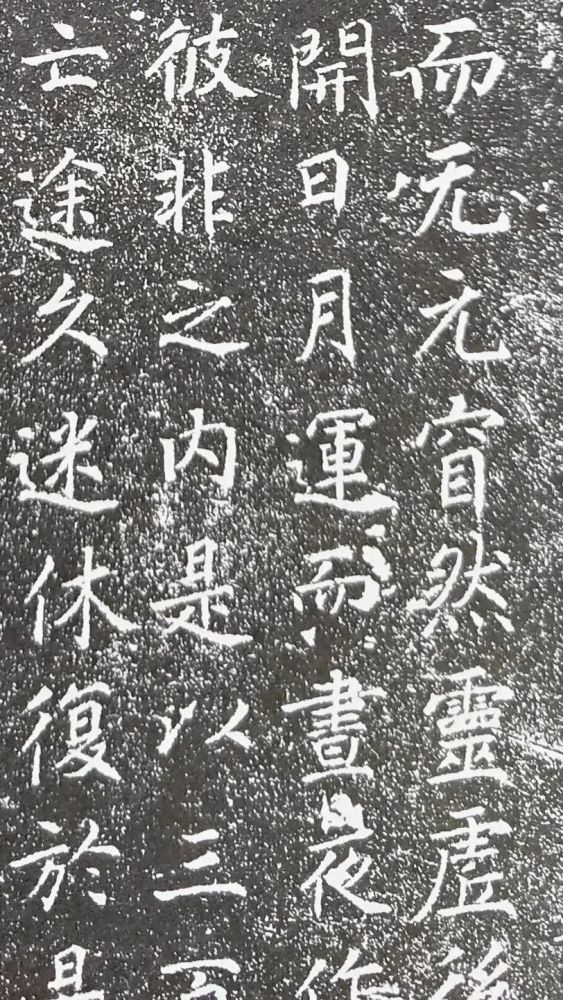 而无元窅然靈虛後
開日月運而晝夜作
彼非之内是以三百
亡途久迷休復於是